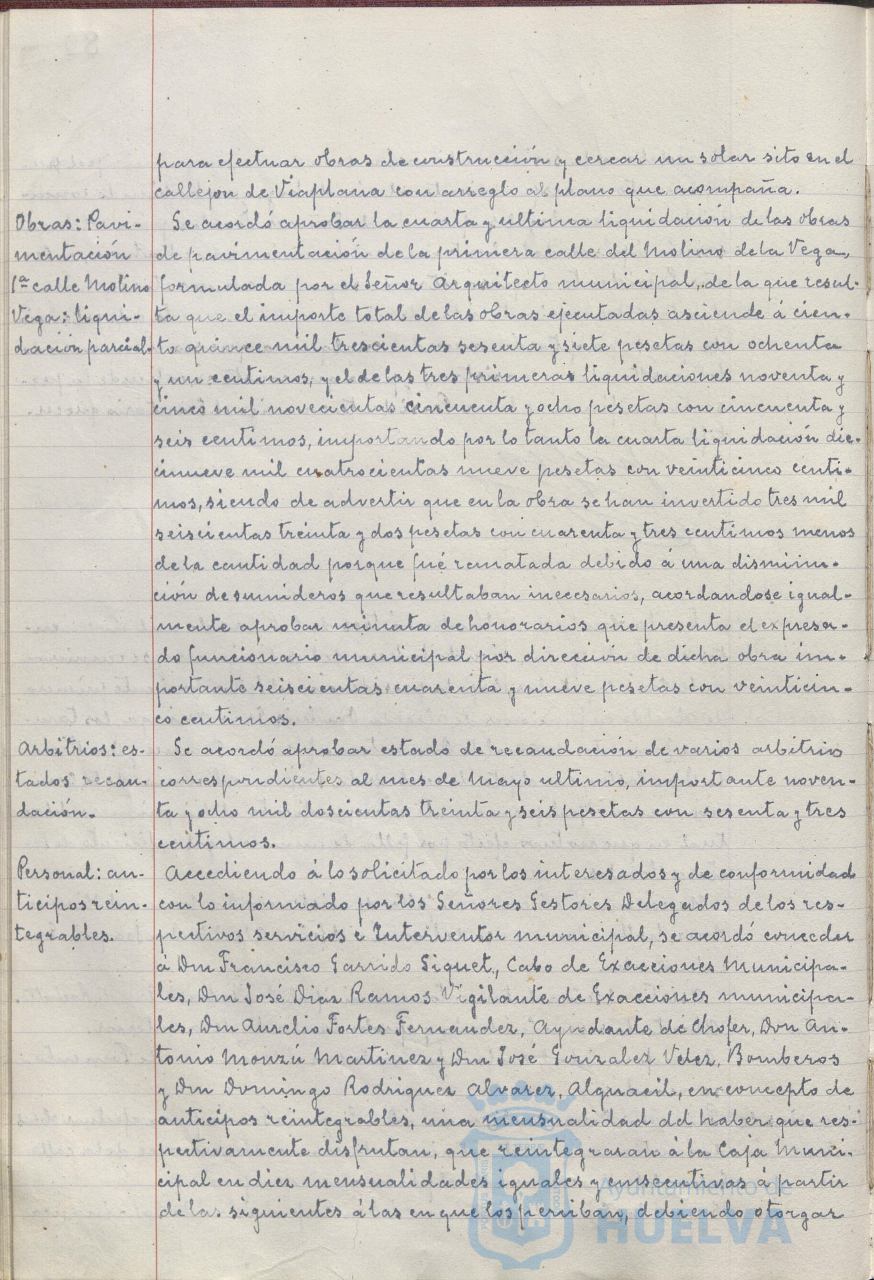 para efectuar obras de construcción y cercar un solar sito en el
callejon de Viaplana con arreglo al plano que acompaña.
Obras: Pavi-
mentación
1ª calle Molino
Vega: liqui-
dación parcial.
Se acordó aprobar la cuarta y ultima liquidación de las obras
de pavimentación de la primera calle del Molino de la Vega,
formulada por el Señor Arquitecto municipal, de la que resul-
ta que el importe total de las obras ejecutadas asciende á cien-
to quince mil trescientas sesenta y siete pesetas con ochenta
y un centimos, y el de las tres primeras liquidaciones noventa y
cinco mil novecientas cincuenta y ocho pesetas con cincuenta y
seis centimos, importando por lo tanto la cuarta liquidación die-
cinueve mil cuatrocientas nueve pesetas con veinticinco centi-
mos, siendo de advertir que en la obra se han invertido tres mil
seiscientas treinta y dos pesetas con cuarenta y tres centimos menos
de la cantidad porque fué rematada debido á una disminu-
ción de sumideros que resultaban inecesarios, acordandose igual-
mente aprobar minuta de honorarios que presenta el expresa-
do funcionario municipal por dirección de dicha obra im-
portante seiscientas cuarenta y nueve pesetas con veinticin-
co centimos.
Arbitrios: es-
tados recau-
dación.
Se acordó aprobar estado de recaudación de varios arbitrio
correspondientes al mes de Mayo ultimo, importante noven-
ta y ocho mil doscientas treinta y seis pesetas con sesenta y tres
centimos.
Personal: an-
ticipos rein-
tegrables.
Accediendo á lo solicitado por los interesados y de conformidad
con lo informado por los Señores Gestores Delegados de los res-
pectivos servicios e Interventor municipal, se acordó conceder
á Don Francisco Garrido Siguet, Cabo de Exacciones Municipa-
les, Don José Diaz Ramos Vigilante de Exacciones municipa-
les, Don Aurelio Fortes Fernandez, Ayudante de Chofer, Don An-
tonio Monzú Martinez y Don José Gonzalez Velez, Bomberos
y Don Domingo Rodriguez Alvarez, Alguacil, en concepto de
anticipos reintegrables, una mensualidad del haber que res-
pectivamente disfrutan, que reintegraran á la Caja Muni-
cipal en diez mensualidades iguales y consecutivas á partir
de las siguientes á las en que los perciban, debiendo otorgar
Ayuntamiento de
HUELVA